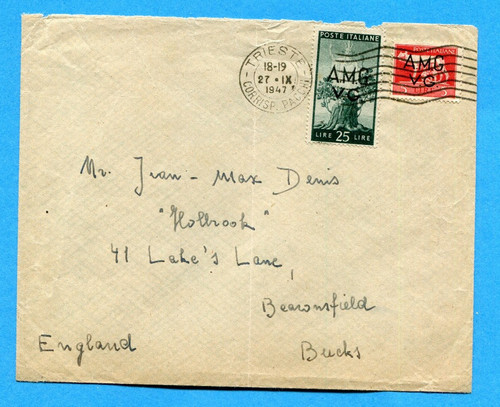 TRIESTE
18-19
27 • IX
1947
CORRISP. PACCHI
POSTE ITALIANE
A.M.G.
V.G.
LIRE 25 LIRE
POSTE ITALIANE
A.M.G.
V.G.
5
Mr. Jean - Max Denis
"Holbrook"
41 Lake's Lane,
Beaconsfield
England
Bucks